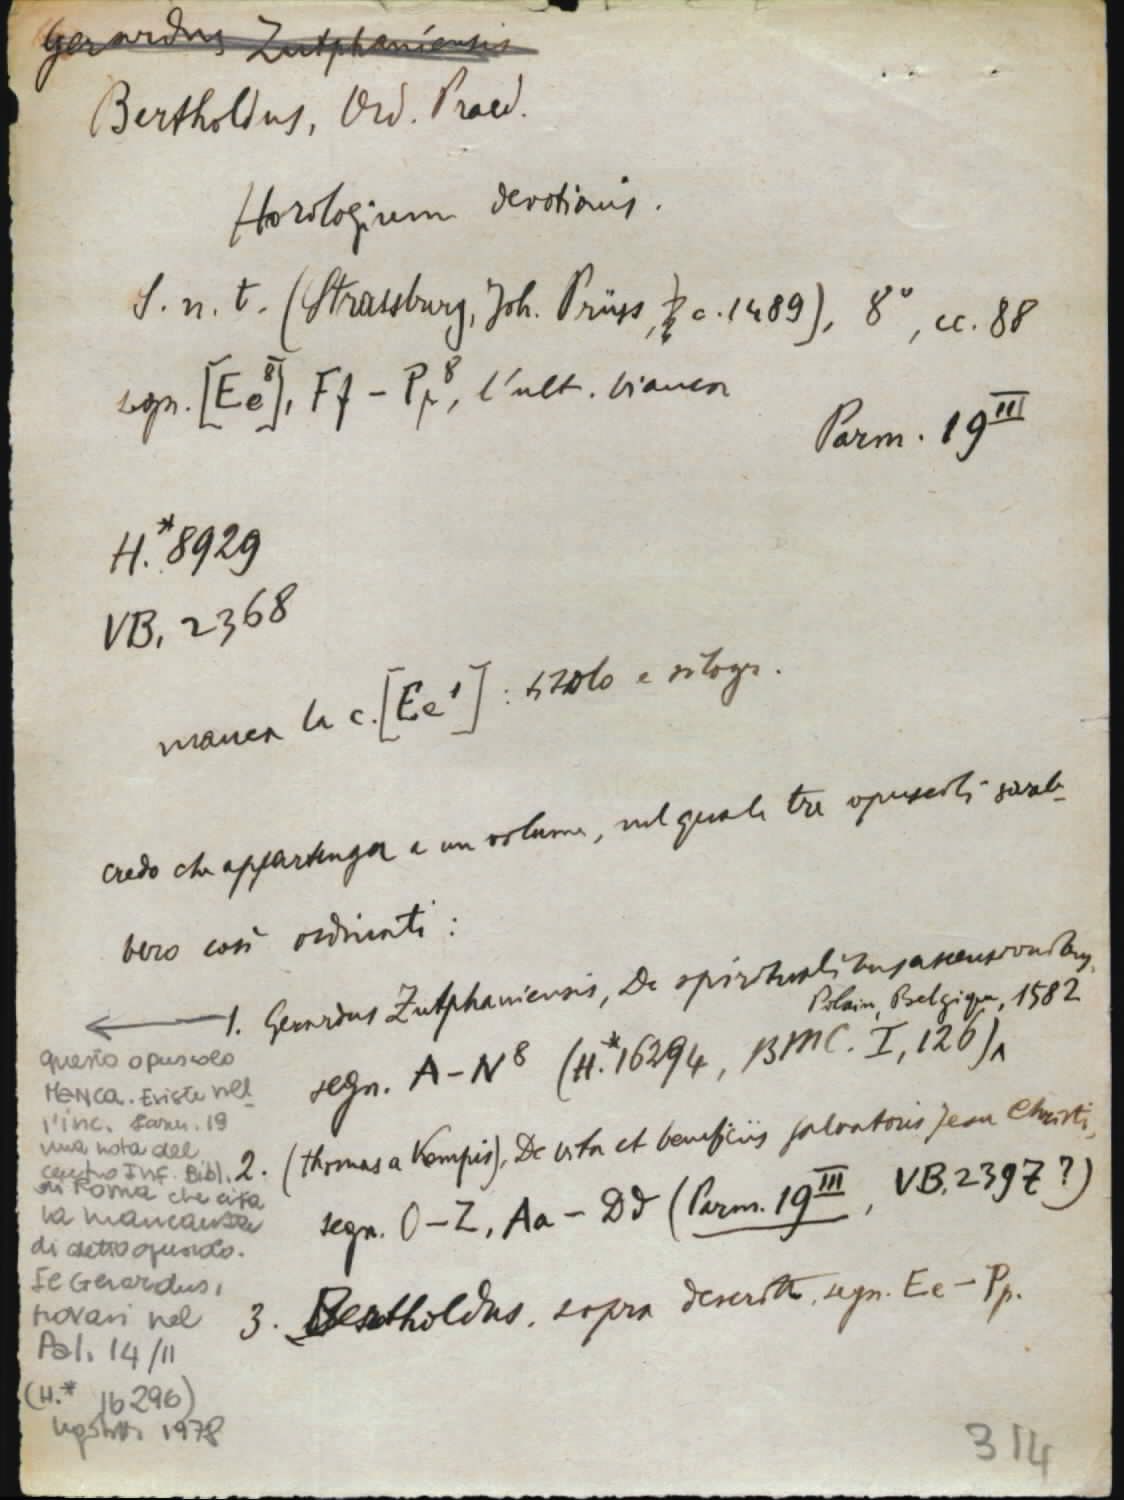 Gerardus Zutphaniensis
Bertholdus, Ord. Praed.
Horologium devotionis.
S. n. t. (Strassburg, Joh. Prüss, c. 1489), 8°, cc. 88
segn. [Ee⁸], Ff - Pp⁸, l'ult. bianca
Parm. 19ᴵᴵᴵ
H.*8929
VB. 2368
manca la c. [Ee¹] : titolo e silogr.
credo che appartenga a un volume, nel quale tre opuscoli sareb-
bero così ordinati :
1. Gerardus Zutphaniensis, De spiritualibus ascensionibus,
segn. A - N⁸ (H.*16294, BMC. I, 126), Polain, Belgique, 1582
2. (Thomas a Kempis), De vita et beneficiis salvatoris Jesu Christi,
segn. O - Z, Aa - Dd (Parm. 19ᴵᴵᴵ, VB. 2397 ?)
3. Bertholdus, sopra descritto, segn. Ee - Pp.
questo opuscolo
manca. Esiste nel-
l'inc. Parm. 19
una nota del
centro Inf. Bibl.
di Roma che cita
la mancanza
di detto opuscolo.
Il Gerardus,
trovasi nel
Pal. 14/II
(H.* 16296)
1978
314